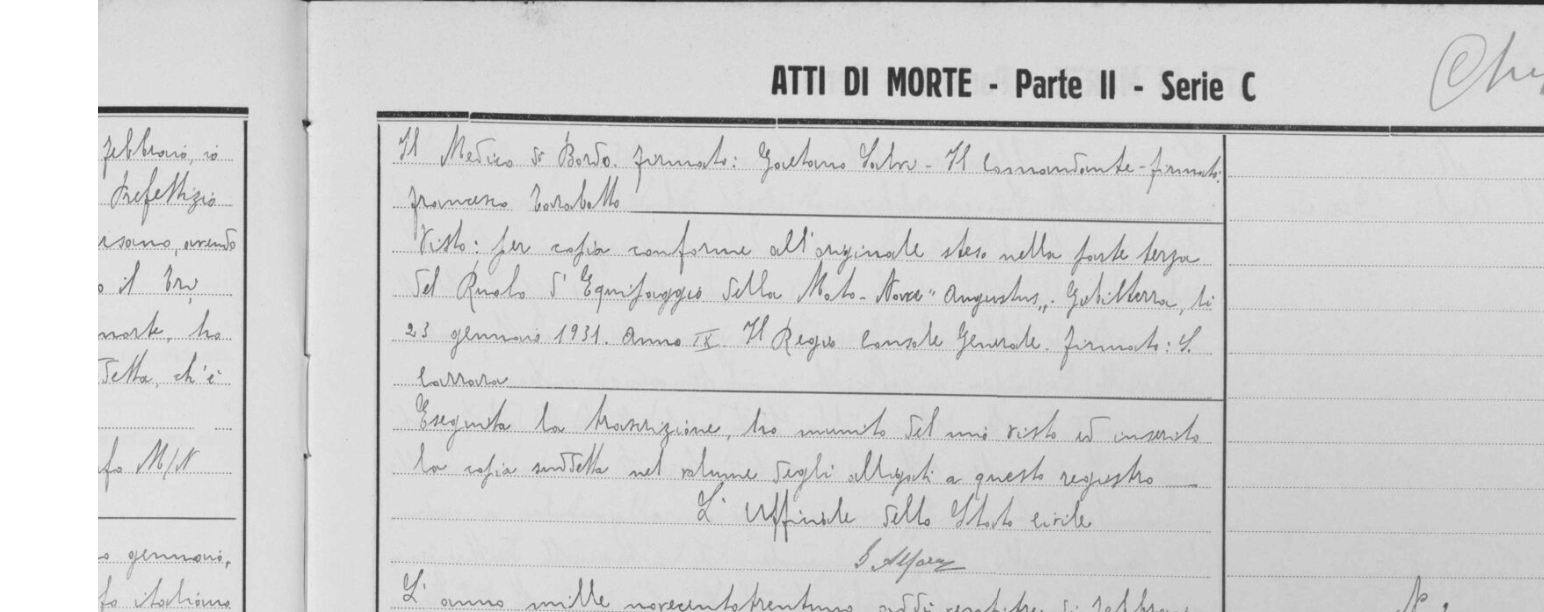 ATTI DI MORTE - Parte II - Serie C
febbraio, io
Prefettizio
avendo
o il
morte, ho
detta, ch'è
M/N
gennaio,
italiano
Il Medico di Bordo. firmato: Gaetano Salvi - Il Comandante - firmato:
Francesco Tarabotto
Visto: per copia conforme all'originale steso nella parte terza
del Ruolo d'Equipaggio della Moto-Nave "Augustus". Gibilterra, li
23 gennaio 1931. Anno IX. Il Regio Console Generale. firmato: S.
Carrara
Eseguita la trascrizione, ho munito del mio visto ed inserito
la copia suddetta nel volume degli allegati a questo registro
L'Ufficiale dello Stato civile
L'anno millenovecentotrentuno, addì ventitre di febbraio
N.